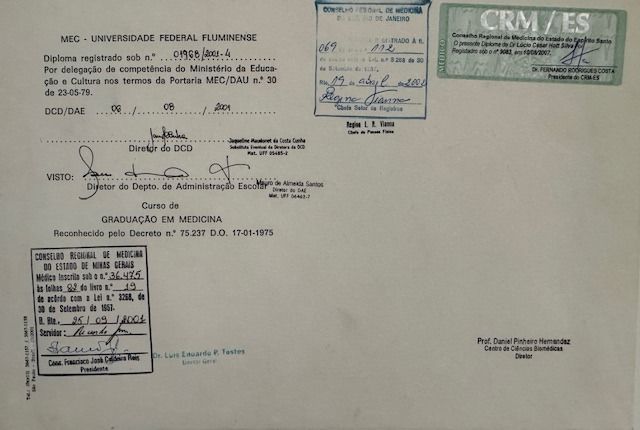 MEC - UNIVERSIDADE FEDERAL FLUMINENSE
Diploma registrado sob n.º 01988/2001-4
Por delegação de competência do Ministério da Educa-
ção e Cultura nos termos da Portaria MEC/DAU n.º 30
de 23-05-79.
DCD/DAE 08 / 08 / 2001
Diretor do DCD
Jaqueline Mautonet da Costa Cunha
Substituta Eventual da Diretora da DCD
Mat. UFF 05485-2
VISTO:
Diretor do Depto. de Administração Escolar
Mauro de Almeida Santos
Diretor do DAE
Mat. UFF
Curso de
GRADUAÇÃO EM MEDICINA
Reconhecido pelo Decreto n.º 75.237 D.O. 17-01-1975
CONSELHO REGIONAL DE MEDICINA
RIO DE JANEIRO
REGISTRADO À fl.
069 112
Lei n.º 3268 de 30
de Setembro de 1957.
Rio, 19 abril 2002
Regina Vianna
Chefe Setor de Registros
Regina L. R. Vianna
Chefe de Pessoa Física
CRM/ES
MÉDICO
Conselho Regional de Medicina do Estado do Espírito Santo
O presente Diploma de Dr Lúcio Cesar Hott Silva foi
Registrado sob o n.º 9083, em 10/08/2007.
Dr. FERNANDO RODRIGUES COSTA
Presidente do CRM-ES
CONSELHO REGIONAL DE MEDICINA
DO ESTADO DE MINAS GERAIS
Médico Inscrito sob o n.º 36.475
às folhas 82 do livro n.º 19
de acôrdo com a Lei n.º 3268, de
30 de Setembro de 1957.
B. Hte. 25 / 09 / 2001
Servidor:
Cons. Francisco José Caldeira Reis
Presidente
Dr. Luis Eduardo P. Tostes
Diretor Geral
Prof. Daniel Pinheiro Hernandez
Centro de Ciências Biomédicas
Diretor